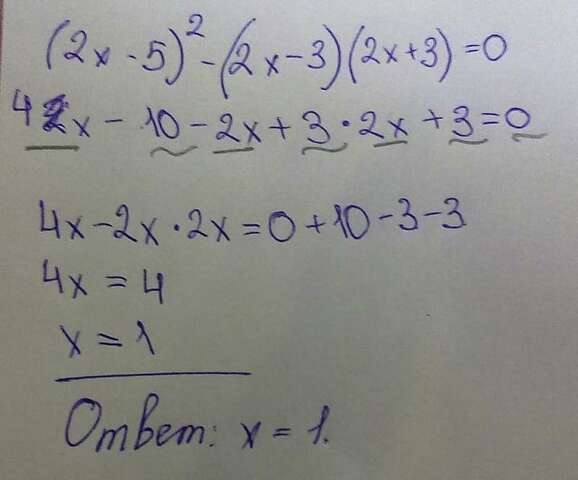 (2x - 5)² - (2x - 3)(2x + 3) = 0
4x - 10 - 2x + 3 · 2x + 3 = 0
4x - 2x · 2x = 0 + 10 - 3 - 3
4x = 4
x = 1
Ответ: x = 1.